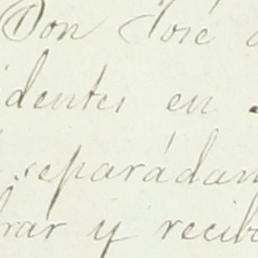 Don José
identes en
separádam
rar y recib